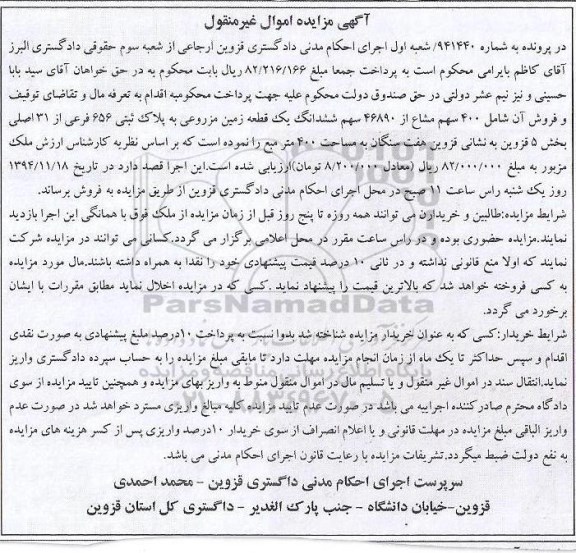 آگهی مزایده اموال غیرمنقول
در پرونده به شماره ۹۴۱۴۴۰/ شعبه اول اجرای احکام مدنی دادگستری قزوین ارجاعی از شعبه سوم حقوقی دادگستری البرز
آقای کاظم بایرامی محکوم است به پرداخت جمعا مبلغ ۸۲/۲۱۶/۱۶۶ ریال بابت محکوم به در حق خواهان آقای سید بابا
حسینی و نیز نیم عشر دولتی در حق صندوق دولت محکوم علیه جهت پرداخت محکومبه اقدام به تعرفه مال و تقاضای توقیف
و فروش آن شامل ۴۰۰ سهم مشاع از ۴۶۸۹۰ سهم ششدانگ یک قطعه زمین مزروعی به پلاک ثبتی ۶۵۶ فرعی از ۳۱ اصلی
بخش ۵ قزوین به نشانی قزوین هفت سنگان به مساحت ۴۰۰ متر مبع را نموده است که بر اساس نظریه کارشناس ارزش ملک
مزبور به مبلغ ۸۲/۰۰۰/۰۰۰ ریال (معادل ۸/۲۰۰/۰۰۰ تومان)ارزیابی شده است.این اجرا قصد دارد در تاریخ ۱۳۹۴/۱۱/۱۸
روز یک شنبه راس ساعت ۱۱ صبح در محل اجرای احکام مدنی دادگستری قزوین از طریق مزایده به فروش برساند.
شرایط مزایده:طالبین و خریدارن می توانند همه روزه تا پنج روز قبل از زمان مزایده از ملک فوق با همانگی این اجرا بازدید
نمایند.مزایده حضوری بوده و در راس ساعت مقرر در محل اعلامی برگزار می گردد.کسانی می توانند در مزایده شرکت
نمایند که اولا منع قانونی نداشته و در ثانی ۱۰ درصد قیمت پیشنهادی خود را نقدا به همراه داشته باشند.مال مورد مزایده
به کسی فروخته خواهد شد که بالاترین قیمت را پیشنهاد نماید .کسی که در مزایده اخلال نماید مطابق مقررات با ایشان
برخورد می گردد.
شرایط خریدار:کسی که به عنوان خریدار مزایده شناخته شد بدوا نسبت به پرداخت ۱۰درصد مبلغ پیشنهادی به صورت نقدی
اقدام و سپس حداکثر تا یک ماه از زمان انجام مزایده مهلت دارد تا مابقی مبلغ مزایده را به حساب سپرده دادگستری واریز
نماید.انتقال سند در اموال غیر منقول و یا تسلیم مال در اموال منقول منوط به واریز بهای مزایده و همچنین تایید مزایده از سوی
دادگاه محترم صادرکننده اجراییه می باشد در صورت عدم تایید مزایده کلیه مبالغ واریزی مسترد خواهد شد در صورت عدم
واریز الباقی مبلغ مزایده در مهلت قانونی و یا اعلام انصراف از سوی خریدار ۱۰درصد واریزی پس از کسر هزینه های مزایده
به نفع دولت ضبط میگردد.تشریفات مزایده با رعایت قانون اجرای احکام مدنی می باشد.
سرپرست اجرای احکام مدنی داگستری قزوین - محمد احمدی
قزوین-خیابان دانشگاه - جنب پارک الغدیر - داگستری کل استان قزوین
ParsNamadData
پایگاه اطلاع رسانی مناقصه و مزایده
۰۲۱-۸۸۳۴۹۶۷۰-۵